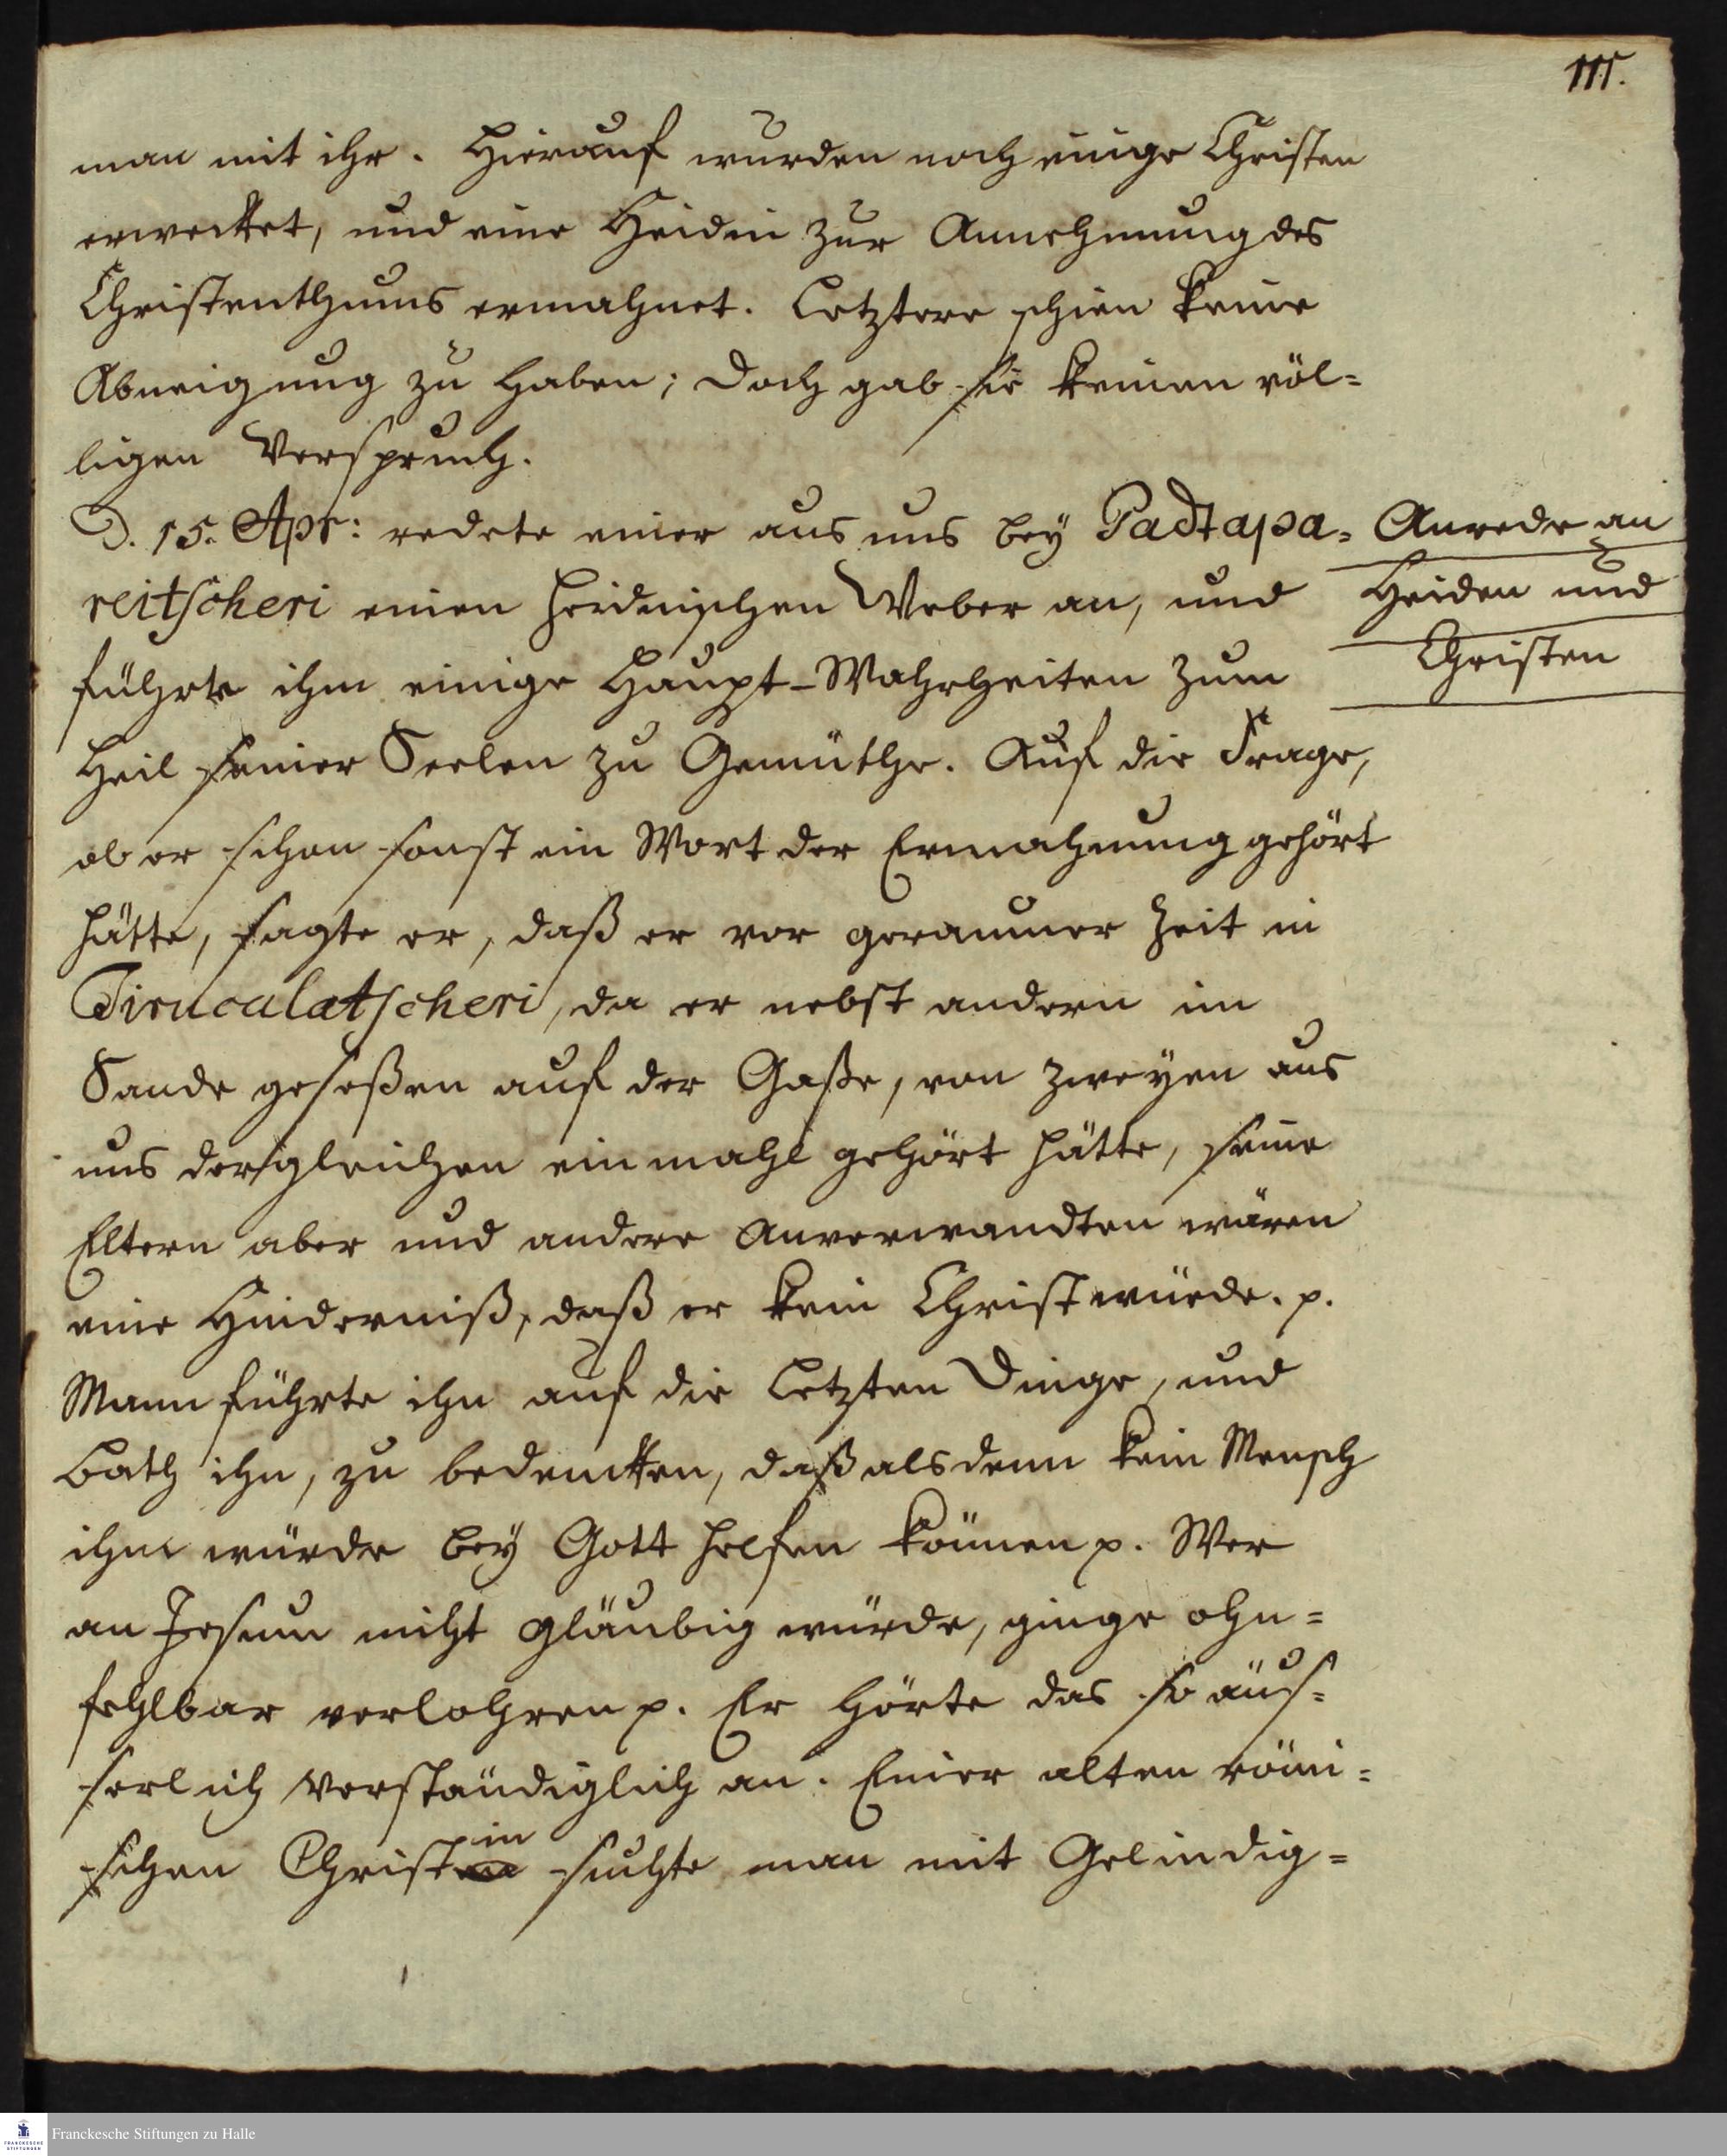 115.
man mit ihr. Hierauf wurden noch einige Christen
erwecket, und eine Heidin zur Annehmung des
Christenthums ermahnet. Letztere schien keine
Abneigung zu haben; doch gab sie keinen völ=
ligen Verspruch.
D. 15. Apr: redete einer aus uns bey Padtapa=
reitscheri einen heidnischen Weber an, und
führte ihm einige Haupt-Wahrheiten zum
Heil seiner Seelen zu Gemüthe. Auf die Frage,
ob er schon sonst ein Wort der Ermahnung gehört
hätte, sagte er, daß er vor geraumer Zeit in
Tiruculatscheri, da er nebst andern im
Sande geseßen auf der Gaße, von zweyen aus
uns dergleichen einmahl gehört hätte, seine
Eltern aber und andere Anverwandten wären
eine Hinderniß, daß er kein Christ würde. p.
Mann führte ihn auf die Letzten Dinge, und
bath ihn, zu bedencken, daß alsdenn kein Mensch
ihm würde bey Gott helfen können p. Wer
an Jesum nicht gläubig würde, ginge ohn=
fehlbar verlohren p. Er hörte das so äus=
serlich verständiglich an. Einer alten römi=
schen Christin suchte man mit Gelindig=
Anrede an
Heiden und
Christen
Franckesche Stiftungen zu Halle
FRANCKESCHE
STIFTUNGEN